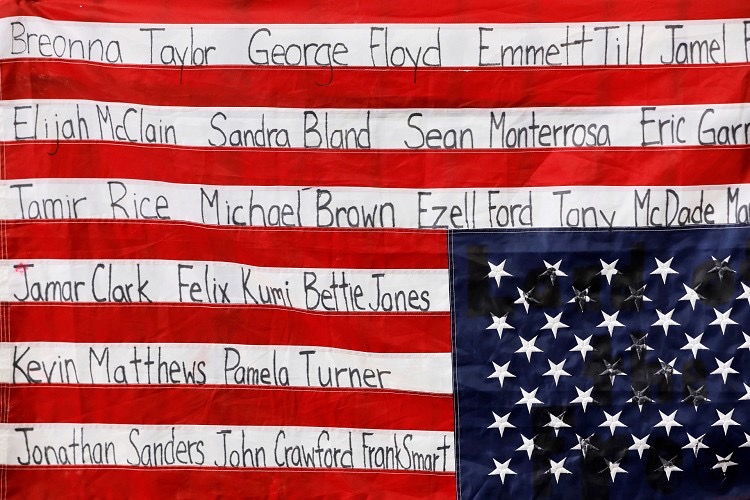 Breonna Taylor George Floyd Emmett Till Jamel
Elijah McClain Sandra Bland Sean Monterrosa Eric
Tamir Rice Michael Brown Ezell Ford Tony McDade
Jamar Clark Felix Kumi Bettie Jones
Kevin Matthews Pamela Turner
Jonathan Sanders John Crawford Frank Smart